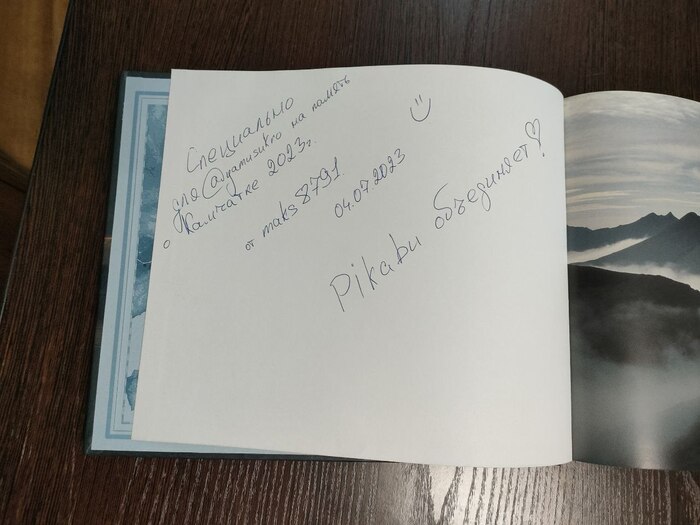 Специально
для @yamusukro на память
о Камчатке 2023г.
от maks8791
04.07.2023
Pikabu объединяет♡!